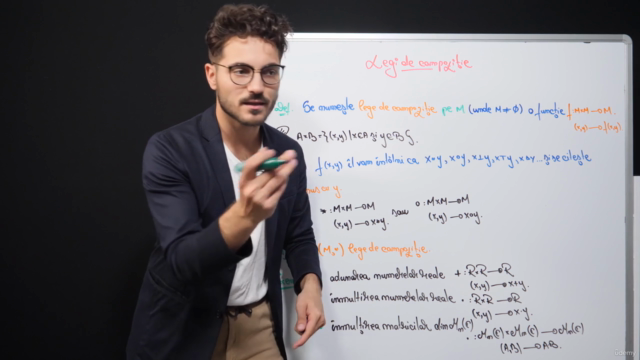 Legi de compoziție
Def Se numește lege de compoziție pe M (unde M ≠ ∅) o funcție f: M×M→M.
(x,y)→f(x,y)
A×B={(x,y) | x∈A și y∈B}.
f(x,y) îl vom întâlni ca x∗y, x∘y, x⊥y, x⊤y, x△y... și se citește
y.
∗: M×M→M sau ∘: M×M→M
(x,y)→x∗y (x,y)→x∘y.
(M,∗) lege de compoziție.
adunarea numerelor reale +: ℝ×ℝ→ℝ
(x,y)→x+y.
înmulțirea numerelor reale ·: ℝ×ℝ→ℝ
(x,y)→x·y.
înmulțirea matricilor din ℳn(ℂ) ·: ℳn(ℂ)×ℳn(ℂ)→ℳn(ℂ)
(A,B)→A·B.
Udemy